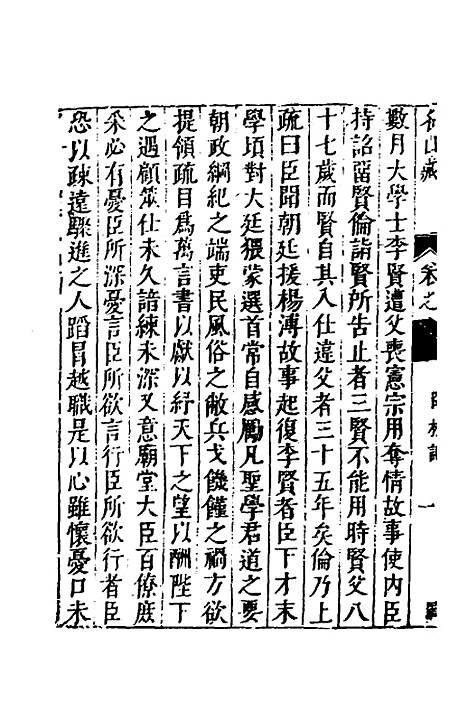 名山藏 卷之 臣林記 一
數月大學士李賢遭父喪憲宗用奪情故事使內臣
持詔留賢倫詣賢所告止者三賢不能用時賢父八
十七歲而賢自其入仕違父者三十五年矣倫乃上
疏曰臣聞朝廷援楊溥故事起復李賢者臣下才末
學頃對大廷猥蒙選首常自感勵凡聖學君道之要
朝政綱紀之端吏民風俗之敝兵戈饑饉之禍方欲
提領疏目爲萬言書以獻以紓天下之望以酬陛下
之遇顧筮仕未久諳練未深又意廟堂大臣百僚庶
采必有憂臣所深憂言臣所欲言行臣所欲行者臣
恐以疎遠驟進之人蹈冒越職是以心雖懷憂口未